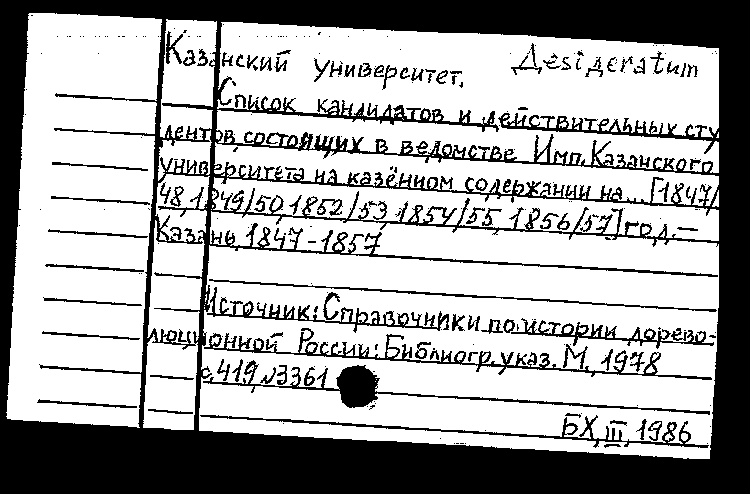 Казанский университет. Desideratum
Список кандидатов и действительных сту
дентов, состоящих в ведомстве Имп. Казанского
университета на казённом содержании на... [1847/
48, 1849/50, 1852/53, 1854/55, 1856/57] год. —
Казань, 1847-1857
Источник: Справочники по истории дорево-
люционной России: Библиогр. указ. М., 1978
с. 419, №3361
БХ, III, 1986